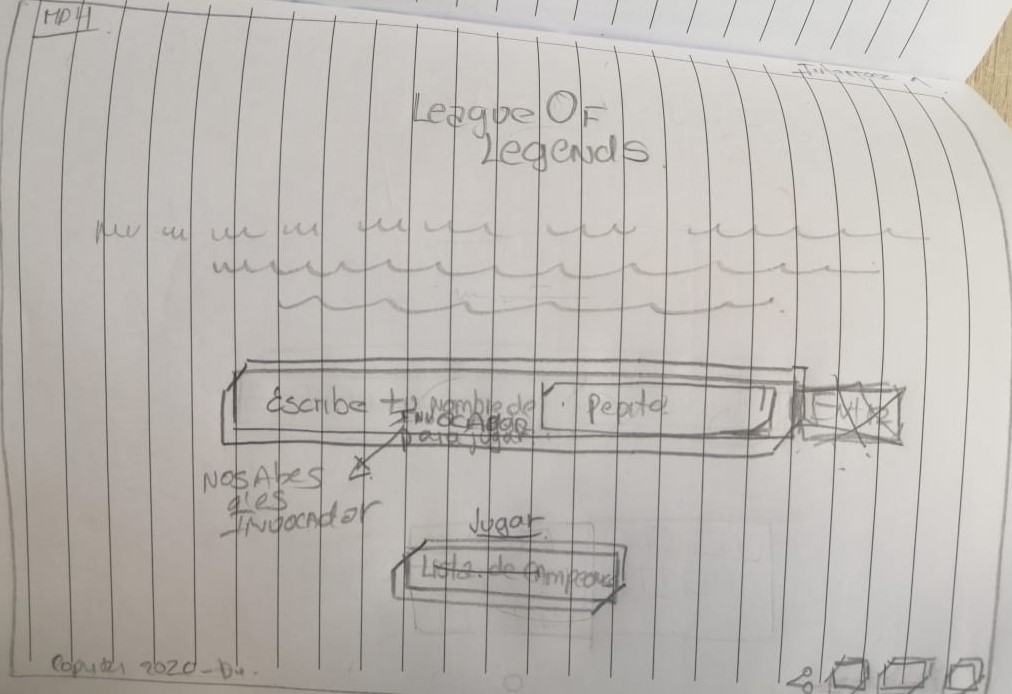 MD4
League Of
Legends
Escribe tu Nombre de
INVOCADOR
para jugar
Pepita
NosAbes
q'es
INVOCADOR
Jugar
Lista de campeones
2020